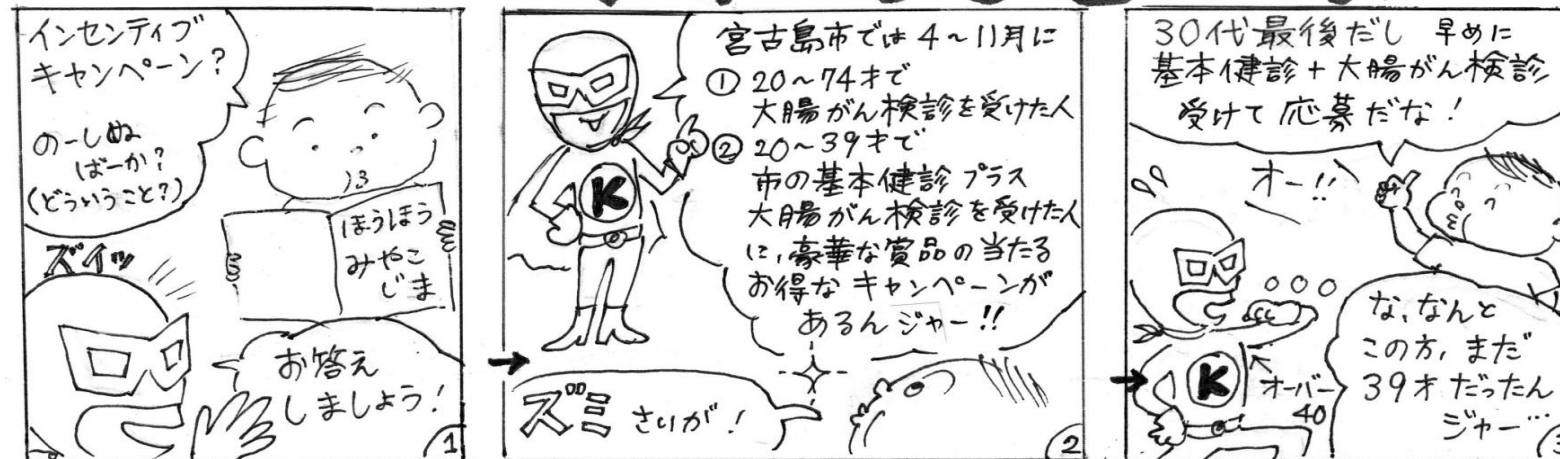 インセンティブ
キャンペーン?
のーしぬ
ばーか?
(どういうこと?)
ほうほう
みやこ
じま
ズイッ
お答え
しましょう!
1
宮古島市では4〜11月に
① 20〜74才で
大腸がん検診を受けた人
② 20〜39才で
市の基本健診プラス
大腸がん検診を受けた人
に、豪華な賞品の当たる
お得なキャンペーンが
あるんジャー!!
K
ズミさいが!
2
30代最後だし 早めに
基本健診+大腸がん検診
受けて応募だな!
オー!!
な、なんと
この方、まだ
39才だったん
ジャー…
K
オーバー
40
3